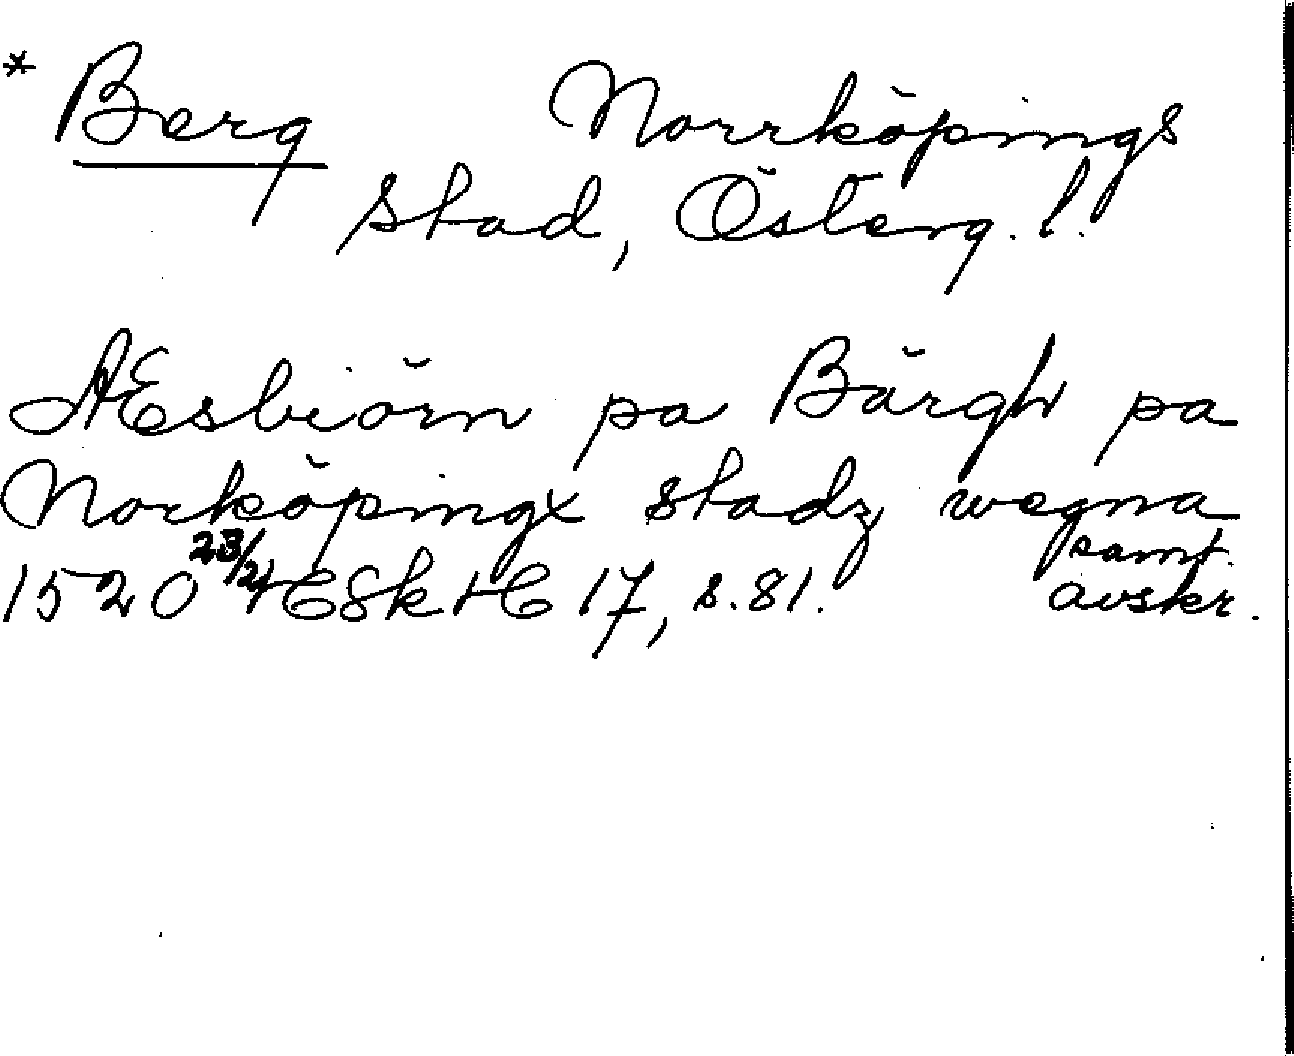 * Berg Norrköpings
stad, Österg. l.
AEsbiörn pa Bärgh pa
Norköpingx stadz wegna
1520 23/4 HSkH 17, s. 81. samt. avskr.